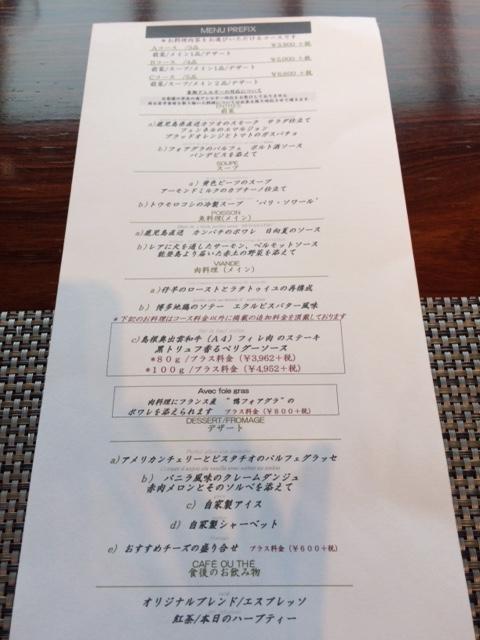 MENU PREFIX
*お料理内容をお選びいただけるコースです
Aコース /3品 ¥3,800 +税
前菜/メイン1品/デザート
Bコース /4品 ¥5,000 +税
前菜/スープ/メイン1品/デザート
Cコース /5品 ¥6,600 +税
前菜/スープ/メイン2品/デザート
前菜
a)鹿児島県直送カツオのスモーク サラダ仕立て
フェンネルのエマルジョン
ブラッドオレンジとトマトのガスパチョ
b)フォアグラのパルフェ ポルト酒ソース
パンデピスを添えて
SOUPE
スープ
a)黄色ビーツのスープ
アーモンドミルクのカプチーノ仕立て
b)トウモロコシの冷製スープ “パリ・ソワール”
POISSON
魚料理(メイン)
a)鹿児島直送 カンパチのポワレ 日向夏のソース
b)レアに火を通したサーモン、ベルモットソース
能登島より届いた赤土の野菜を添えて
VIANDE
肉料理 (メイン)
a)仔羊のローストとラタトゥイユの再構成
b)博多地鶏のソテー エクルビスバター風味
*下記のお料理はコース料金以外に掲載の追加料金を頂戴しております
c)島根奥出雲和牛(A4)フィレ肉 のステーキ
黒トリュフ香るペリグーソース
*80g/プラス料金(¥3,962+税)
*100g/プラス料金(¥4,952+税)
Avec foie gras
肉料理にフランス産 “鴨フォアグラ”の
ポワレを添えられます プラス料金(¥800+税)
DESSERT/FROMAGE
デザート
a)アメリカンチェリーとピスタチオのパルフェグラッセ
b) バニラ風味のクレームダンジュ
赤肉メロンとそのソルベを添えて
c) 自家製アイス
d) 自家製シャーベット
e) おすすめチーズの盛り合せ プラス料金(¥600+税)
CAFÉ OU THÉ
食後のお飲み物
オリジナルブレンド/エスプレッソ
紅茶/本日のハーブティー